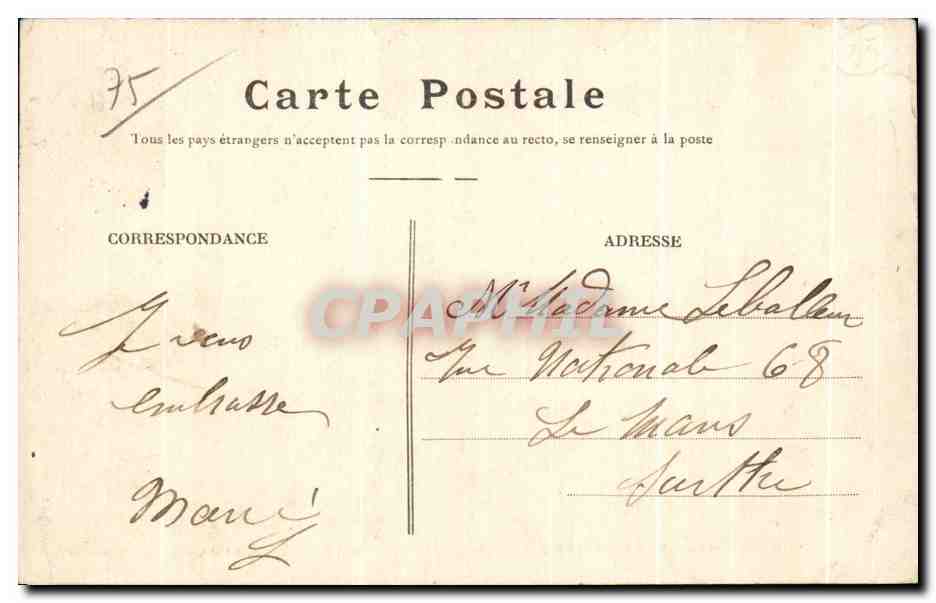 75
Carte Postale
Tous les pays étrangers n'acceptent pas la correspondance au recto, se renseigner à la poste
CORRESPONDANCE
Je vous
embrasse
Marie
L
ADRESSE
Mr Madame Leballeur
Rue Nationale 68
Le Mans
Sarthe
CPAPHIL